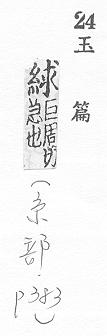 24
玉篇
絿巨周切急也
(糸部.p383)